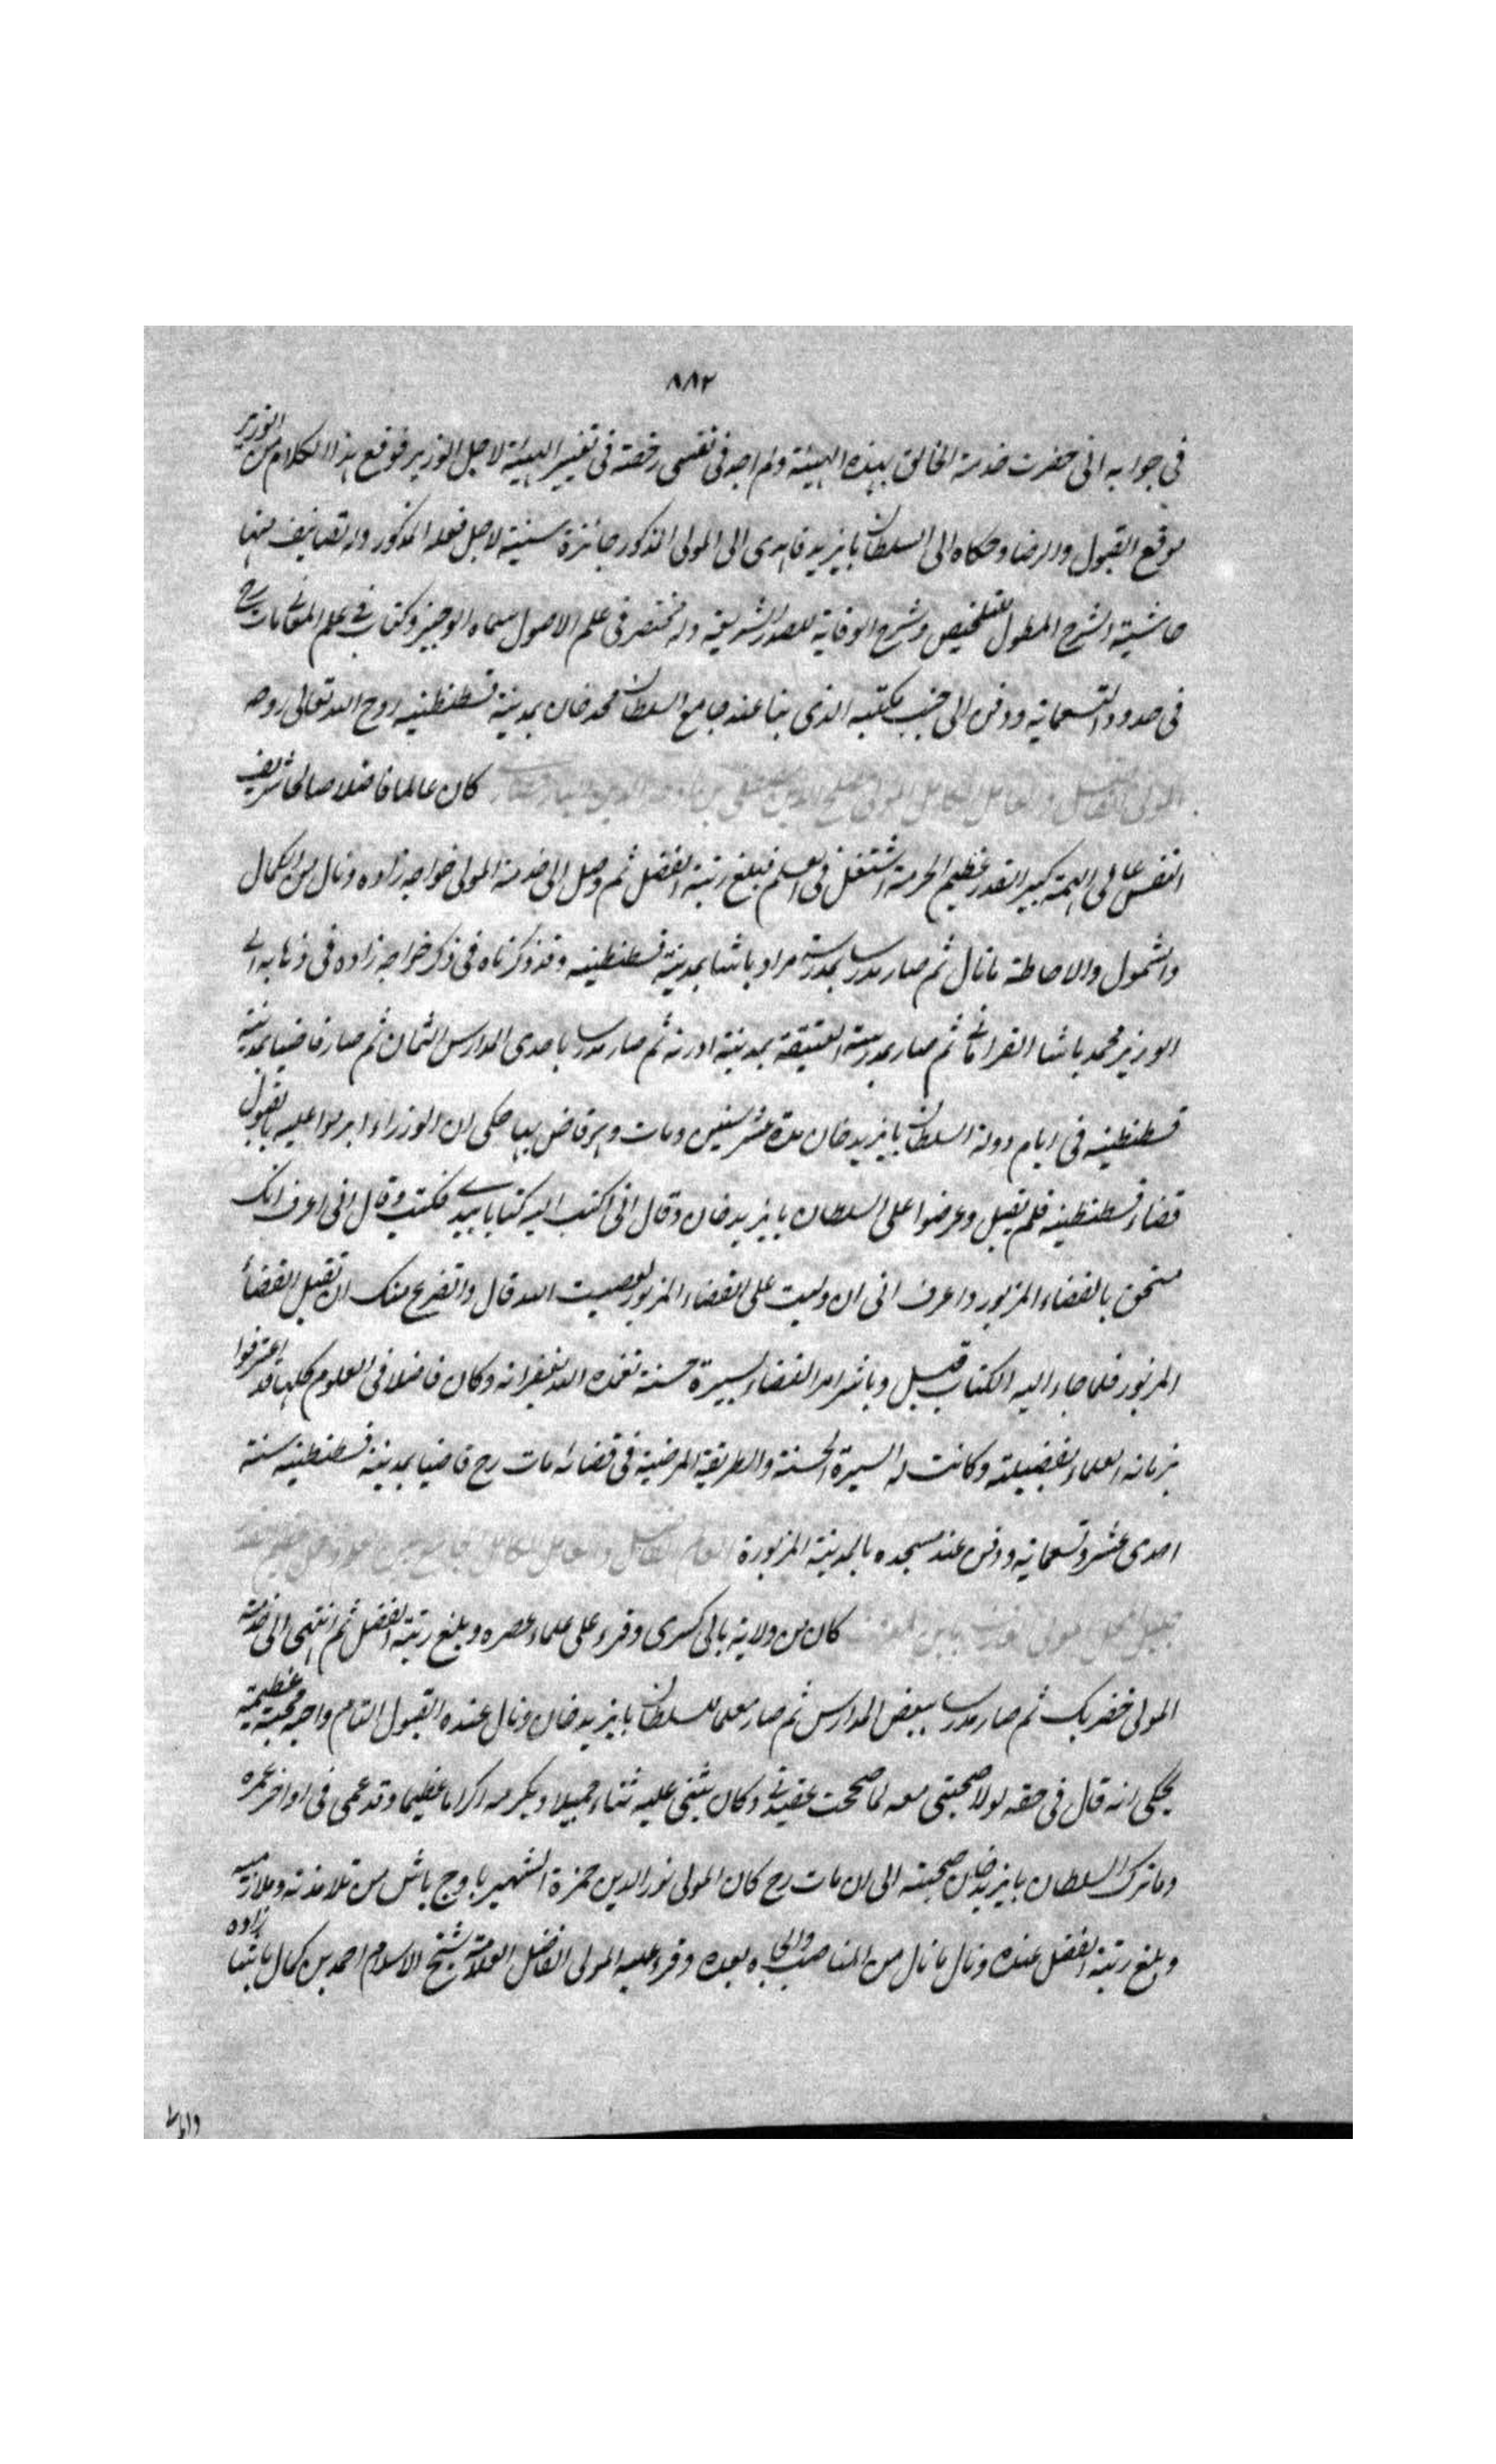 ٨٨٢
في جوابه انى حضرت خدمة الخالق بهذه الهيئة ولم اجد فى نفسى رخصة فى تغيير الهيئة لاجل الوزير فوقع هذا الكلام من الوزير
موقع القبول والرضا وحكاه الى السلطان بايزيد فاهدى الى المولى المذكور جائزة سنية لاجل فعله المذكور وله تصانيف منها
حاشية الشرح المطول للتلخيص وشرح الوقاية لصدر الشريعة وله مختصر فى علم الاصول سماه الوجيز وكتاب فى علم المعانى مات رح
فى حدود التسعمائة ودفن الى جنب مكتبه الذى بنا عند جامع السلطان محمد خان بمدينة قسطنطينيه روح الله تعالى روحه
المولى الفاضل والعامل الكامل المولى مصلح الدين مصطفى بن كان عالما فاضلا صالحا شريف
النفس عالى الهمة كبير القدر عظيم الحرمة اشتغل فى العلم فبلغ رتبة الفضل ثم وصل الى خدمة المولى خواجه زاده ونال من الكمال
والشمول والاحاطة ما نال ثم صار مدرسا بمدرسة مراد باشا بمدينة قسطنطينيه وقد ذكرناه فى ذكر خواجه زاده فى ذهابه الى
الوزير محمد باشا القرامانى ثم صار بمدرسة العتيقة بمدينة ادرنه ثم صار مدرسا باحدى المدارس الثمان ثم صار قاضيا بمدينة
قسطنطينيه فى ايام دولة السلطان بايزيد خان مدة عشر سنين ومات وهو قاض بها حكى ان الوزراء ابرموا عليه بقبول
قضاء قسطنطينيه فلم يقبل وعرضوا على السلطان بايزيد خان وقال انى اكتب اليه كتابا بيدى فكتب وقال انى اعرف انك
مستحق بالقضاء المزبور واعرف انى ان وليت على القضاء المزبور لعصيت الله قال واتضرع منك ان تقبل القضأ
المزبور فلما جاء اليه الكتاب قبل وباشر امر القضاء بسيرة حسنة تغمده الله بغفرانه وكان فاضلا فى العلوم كلها قد اعترفوا
بزمانه العلماء بفضيلته وكانت له السيرة الحسنة والطريقة المرضية فى قضائه مات رح قاضيا بمدينة قسطنطينيه سنة
احدى عشر وتسعمائة ودفن عند مسجده بالمدينة المزبورة العالم الفاضل والعامل الكامل جامع بين
المولى كان من ولاية بالى كسرى وقرء على علماء عصره وبلغ رتبة الفضل ثم انتهى الى خدمة
المولى خضر بك ثم صار مدرسا ببعض المدارس ثم صار معلما للسلطان بايزيد خان ونال عنده القبول التام واحبه محبة عظيمة
يحكى انه قال فى حقه لولا صحبتى معه لما صحت عقيدتى وكان يثنى عليه ثناء جميلا ويكرمه اكراما عظيما وقد عمى فى اواخر عمره
وما ترك السلطان بايزيد خان صحبته الى ان مات رح كان المولى نور الدين حمزة الشهير باوج باش من تلامذته وملازميه
وبلغ رتبة الفضل عنده ونال ما نال من المناصب والجاه بعده وقرء عليه المولى الفاضل العلامة شيخ الاسلام احمد بن كمال باشا زاده